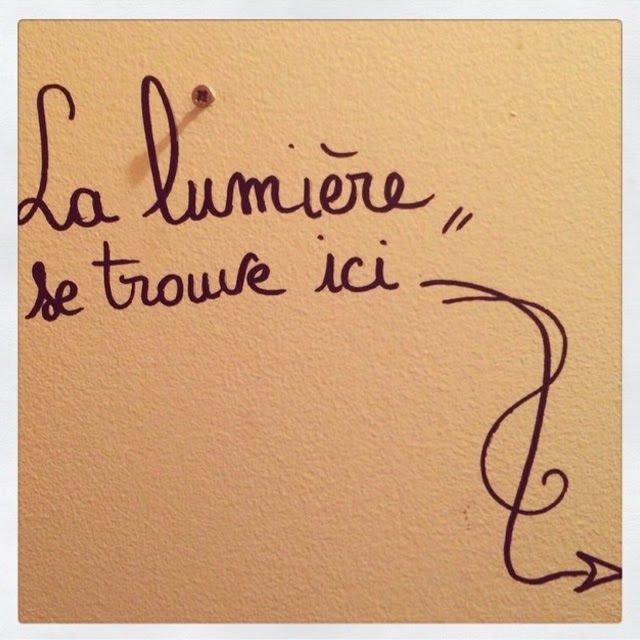 La lumière "
se trouve ici